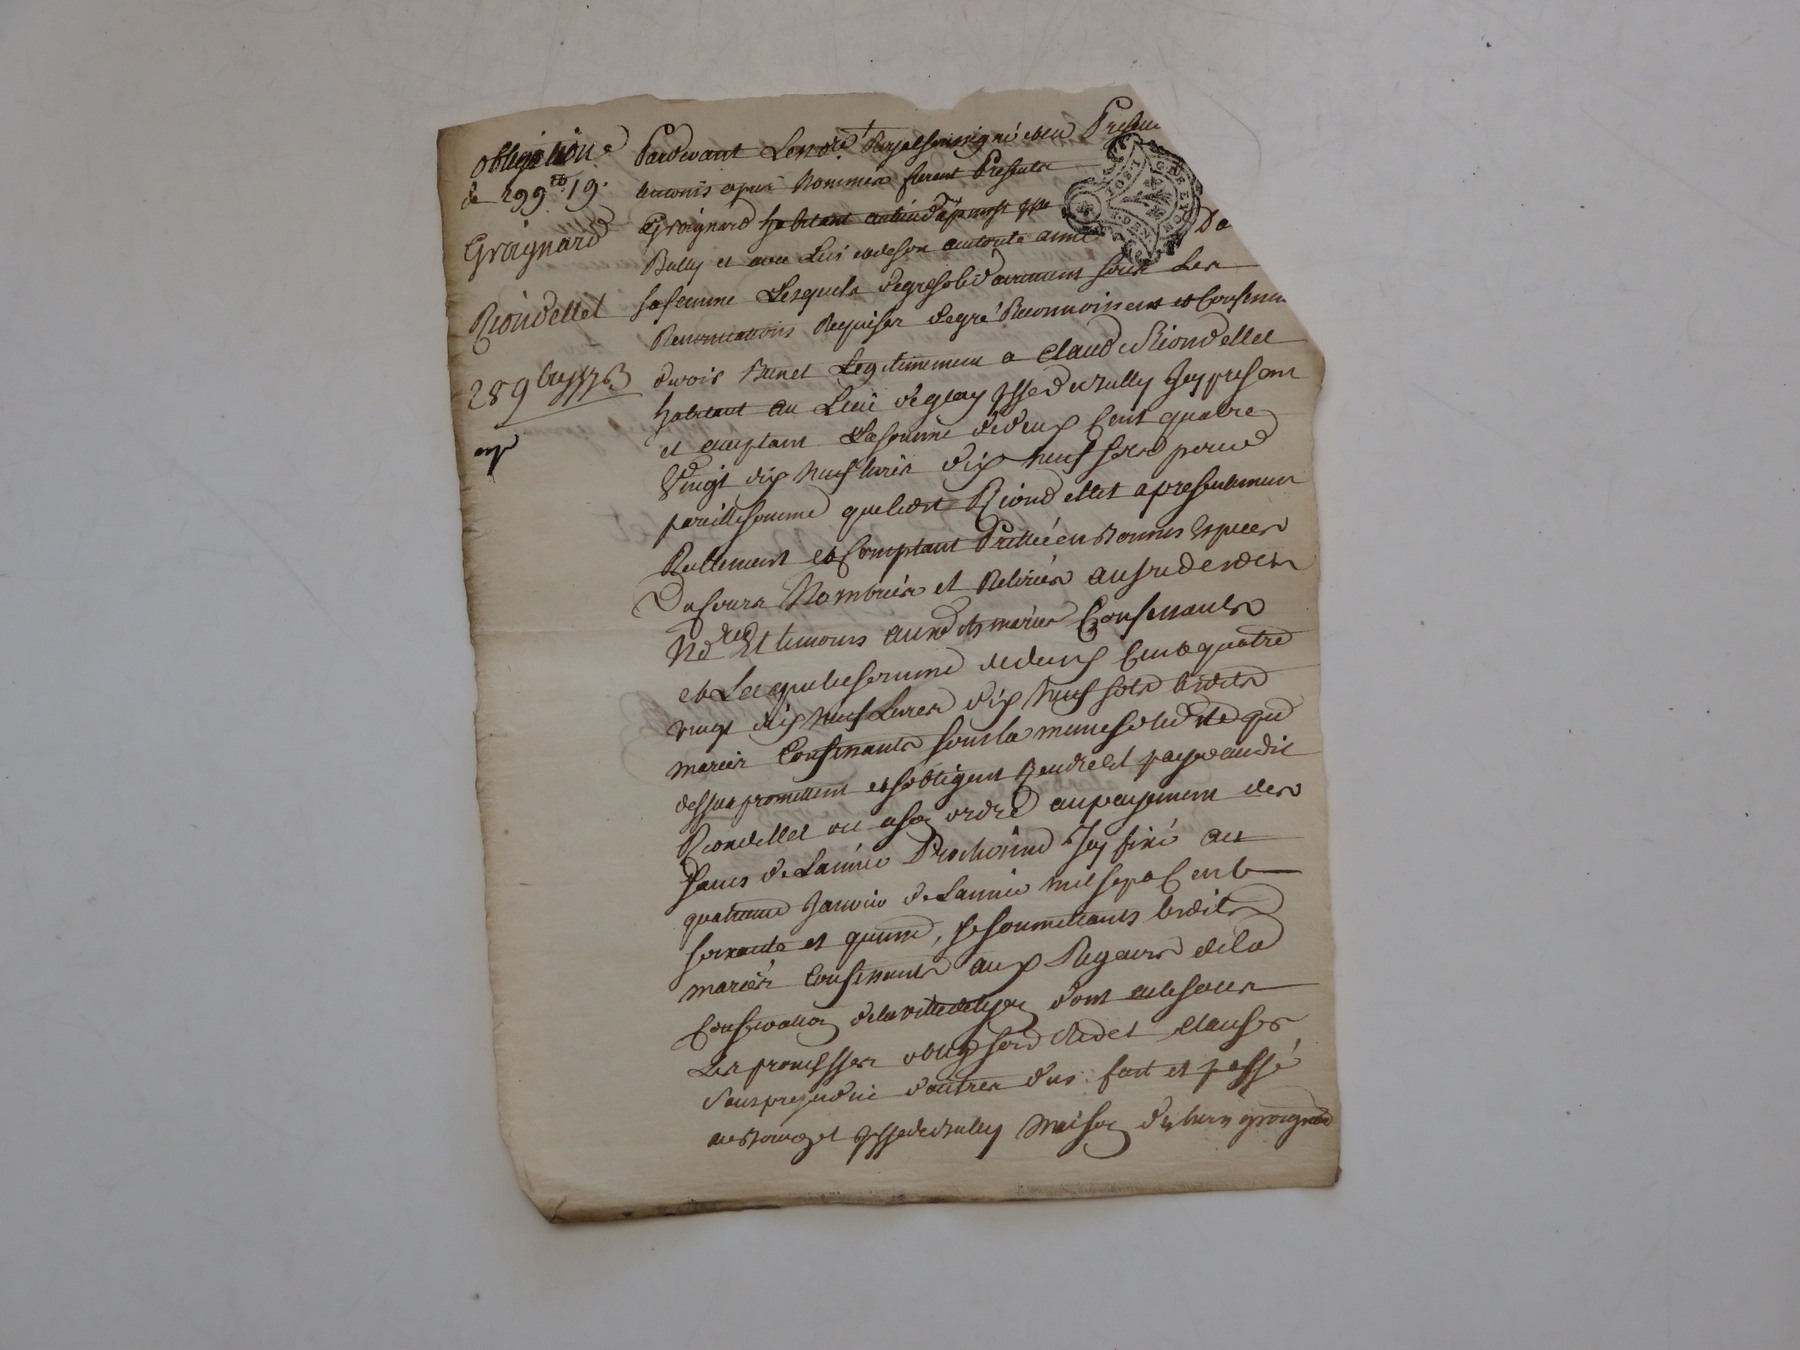 obligation
de 299ᵗᵗ 19ˢ
Groignard
Riondellet
289
Pardevant Le no.ʳᵉ Royal soussigné et en Presence
temoins apres Nommés furent Presents
Groignard habitant au lieu psse
Bully et avec lui et de son autorité anne
sa femme Lesquels de gré solidairement sous Les
Renonciations Requises de gré Reconnoissent et Confessent
devoir Bien et Legitimement a Claude Riondellet
habitant au Lieu de psse de Bully Icy present
et acceptant La somme de deux Cent quatre
Vingt dix neuf livres dix neuf sols pour
pareille somme que ledit Riondellet a presentement
Reellement et Comptant Pretté en Bonnes Especes
Du Cours Nombrées et Retirées au vu de nous dits
Nd.ʳᵉ Et temoins auxdits mariés Confessants
et Laquelle somme de deux Cent quatre
vingt dix neuf Livres dix neuf sols lesdits
mariés Confessants sous la meme solidité que
dessus promettent et s'obligent Rendre et payer audit
Riondellet ou a son ordre au payement des
Rois de L'année Prochaine Icy fixé au
quatrieme Janvier de L'année mil sept Cent
soixante et quinze, se soumettants lesdits
mariés Confessants aux Rigeurs de la
Conservation de la ville de Lyon dont
Les promesses oblig soud Red et clauses
sans prejudice d'autres dus. fait et passé
au Bourg et psse de Bully Maison groignard